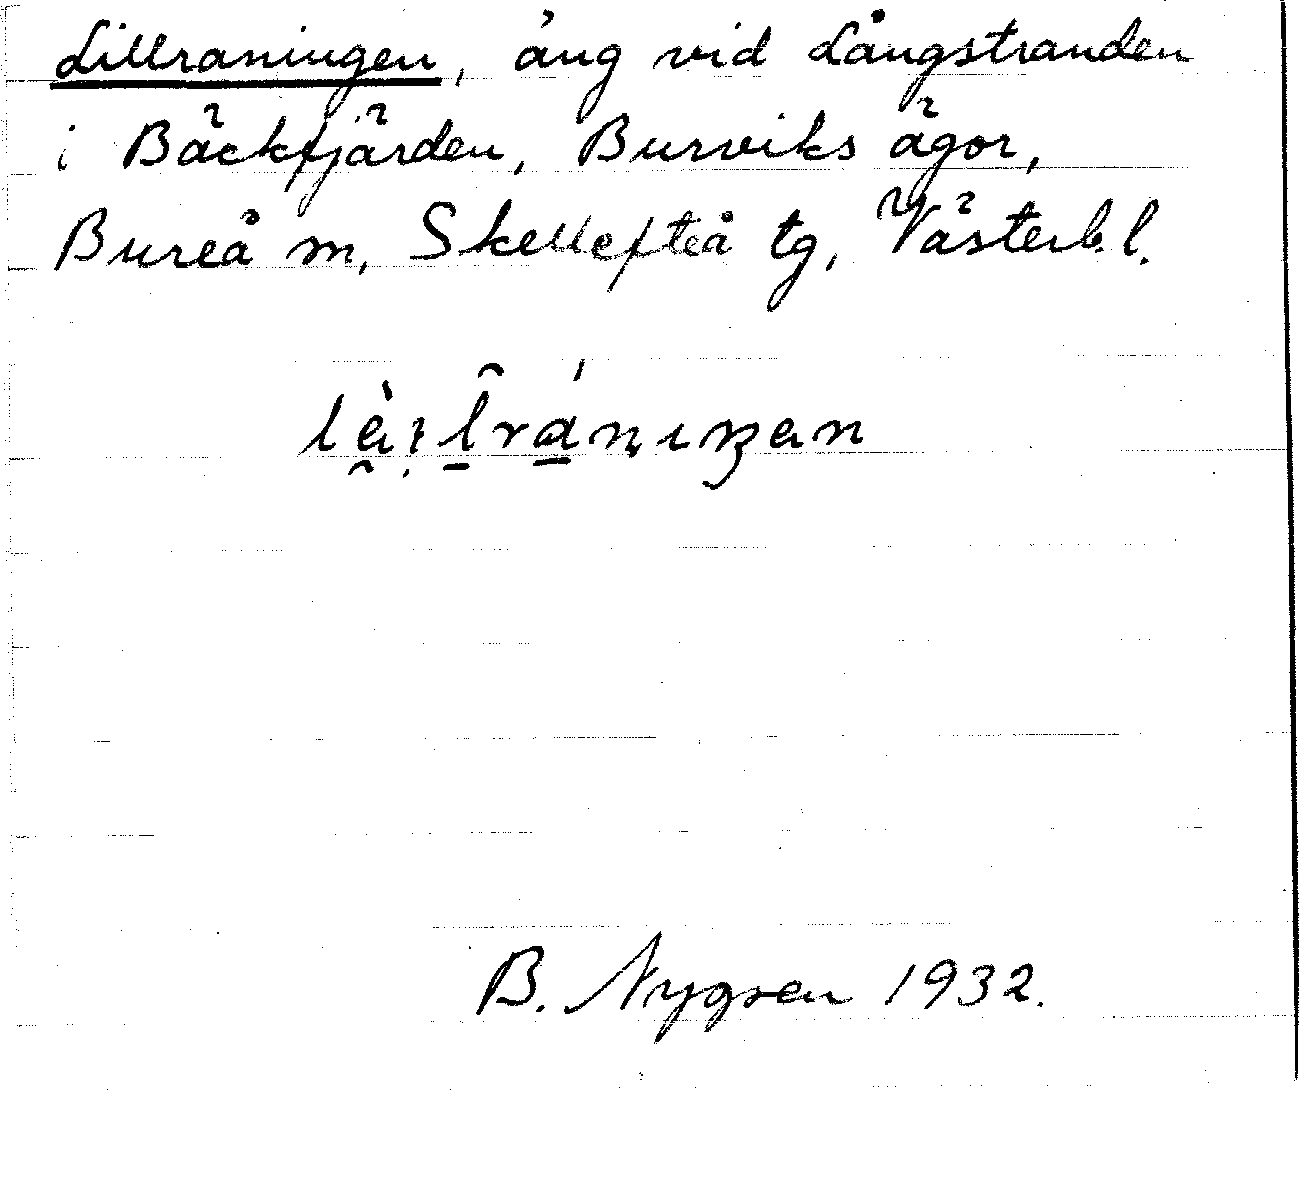 Lillraningen, äng vid Långstranden
i Bäckfjärden, Burviks ägor,
Bureå m, Skellefteå tg, Västerb. l.
B. Nygren 1932.